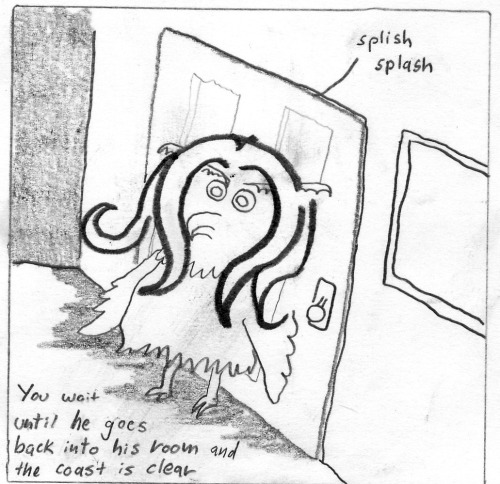 splish
splash
You wait
until he goes
back into his room and
the coast is clear